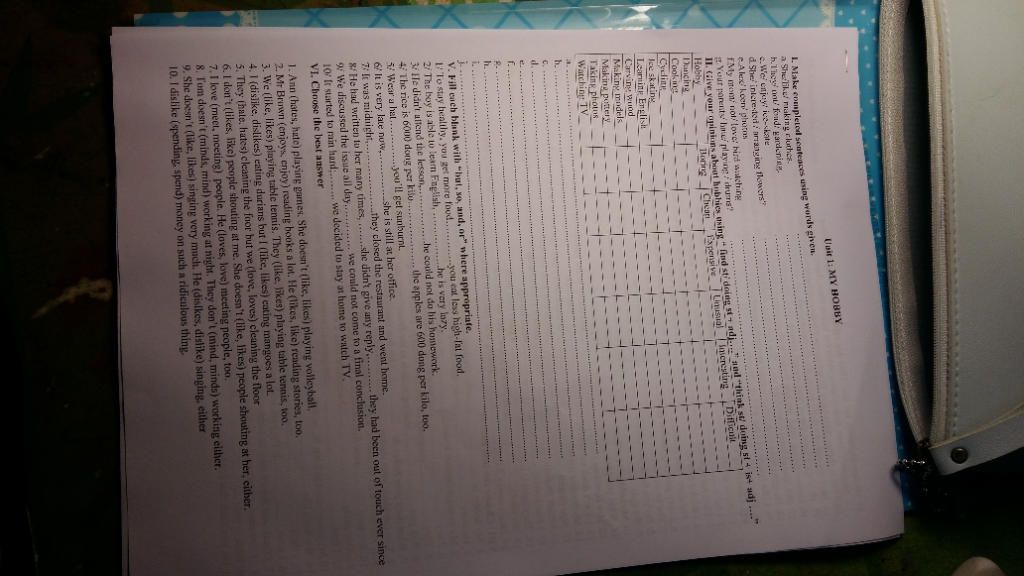 Unit 1: MY HOBBY
I. Make completed sentences using words given.
a.She/like/ making clothes.
b.They/ not/ fond/ gardening.
c.We/ enjoy/ ice-skate
d.She/ interested / arranging flowers?
e.Alice/ keen/ photos
f.My aunt/ not/ love/ bird watching
g.Your parents/ hate/ playing / drums?
II. Give your opinions about hobbies using " find st/ doing st + adj…." and "think st/ doing st + is+ adj …."
Hobby Boring Cheap Expensive Unusual Interesting Difficult
Judo
Cooking
Cycling
Ice-skating
Learning English
Carving wood
Making models
Making pottery
Taking photos
Watching TV
a.
b.
c.
d.
e.
f.
g.
h.
i.
j.
V. Fill each blank with "but, so, and, or" where appropriate.
1/ To stay healthy, you get more food, ………you eat less high-fat food
2/ The boy is able to learn English, ………he is very lazy.
3/ He didn't attend the lesson,………he could not do his homework.
4/ The rice is 6000 dong per kilo………the apples are 600 dong per kilo, too.
5/ Wear a hat, ………you'll get sunburnt.
6/ It is very late now, ………she is still at her office.
7/ It was midnight,………they closed the restaurant and went home.
8/ He had written to her many times, ………she didn't give any reply,………they had been out of touch ever since
9/ We discussed the issue all day,………we could not come to a final conclusion.
10/ It started to rain hard………we decided to stay at home to watch TV.
VI. Choose the best answer
1. Ann (hates, hate) playing games. She doesn't (like, likes) playing volleyball.
2. Mr Brown (enjoys, enjoy) reading books a lot. He (likes, like) reading stories, too.
3. We (like, likes) playing table tennis. They (like, likes) playing table tennis, too.
4. I (dislike, dislikes) eating durians but I (like, likes) eating mangoes a lot.
5. They (hate, hates) cleaning the floor but we (love, loves) cleaning the floor
6. I don't (likes, like) people shouting at me. She doesn't (like, likes) people shouting at her, either.
7. I love (meet, meeting) people. He (loves, love) meeting people, too.
8. Tom doesn't (minds, mind) working at night. They don't (mind, minds) working either.
9. She doesn't (like, likes) singing very much. He (dislikes, dislike) singing, either
10. I dislike (spending, spend) money on such a ridiculous thing.